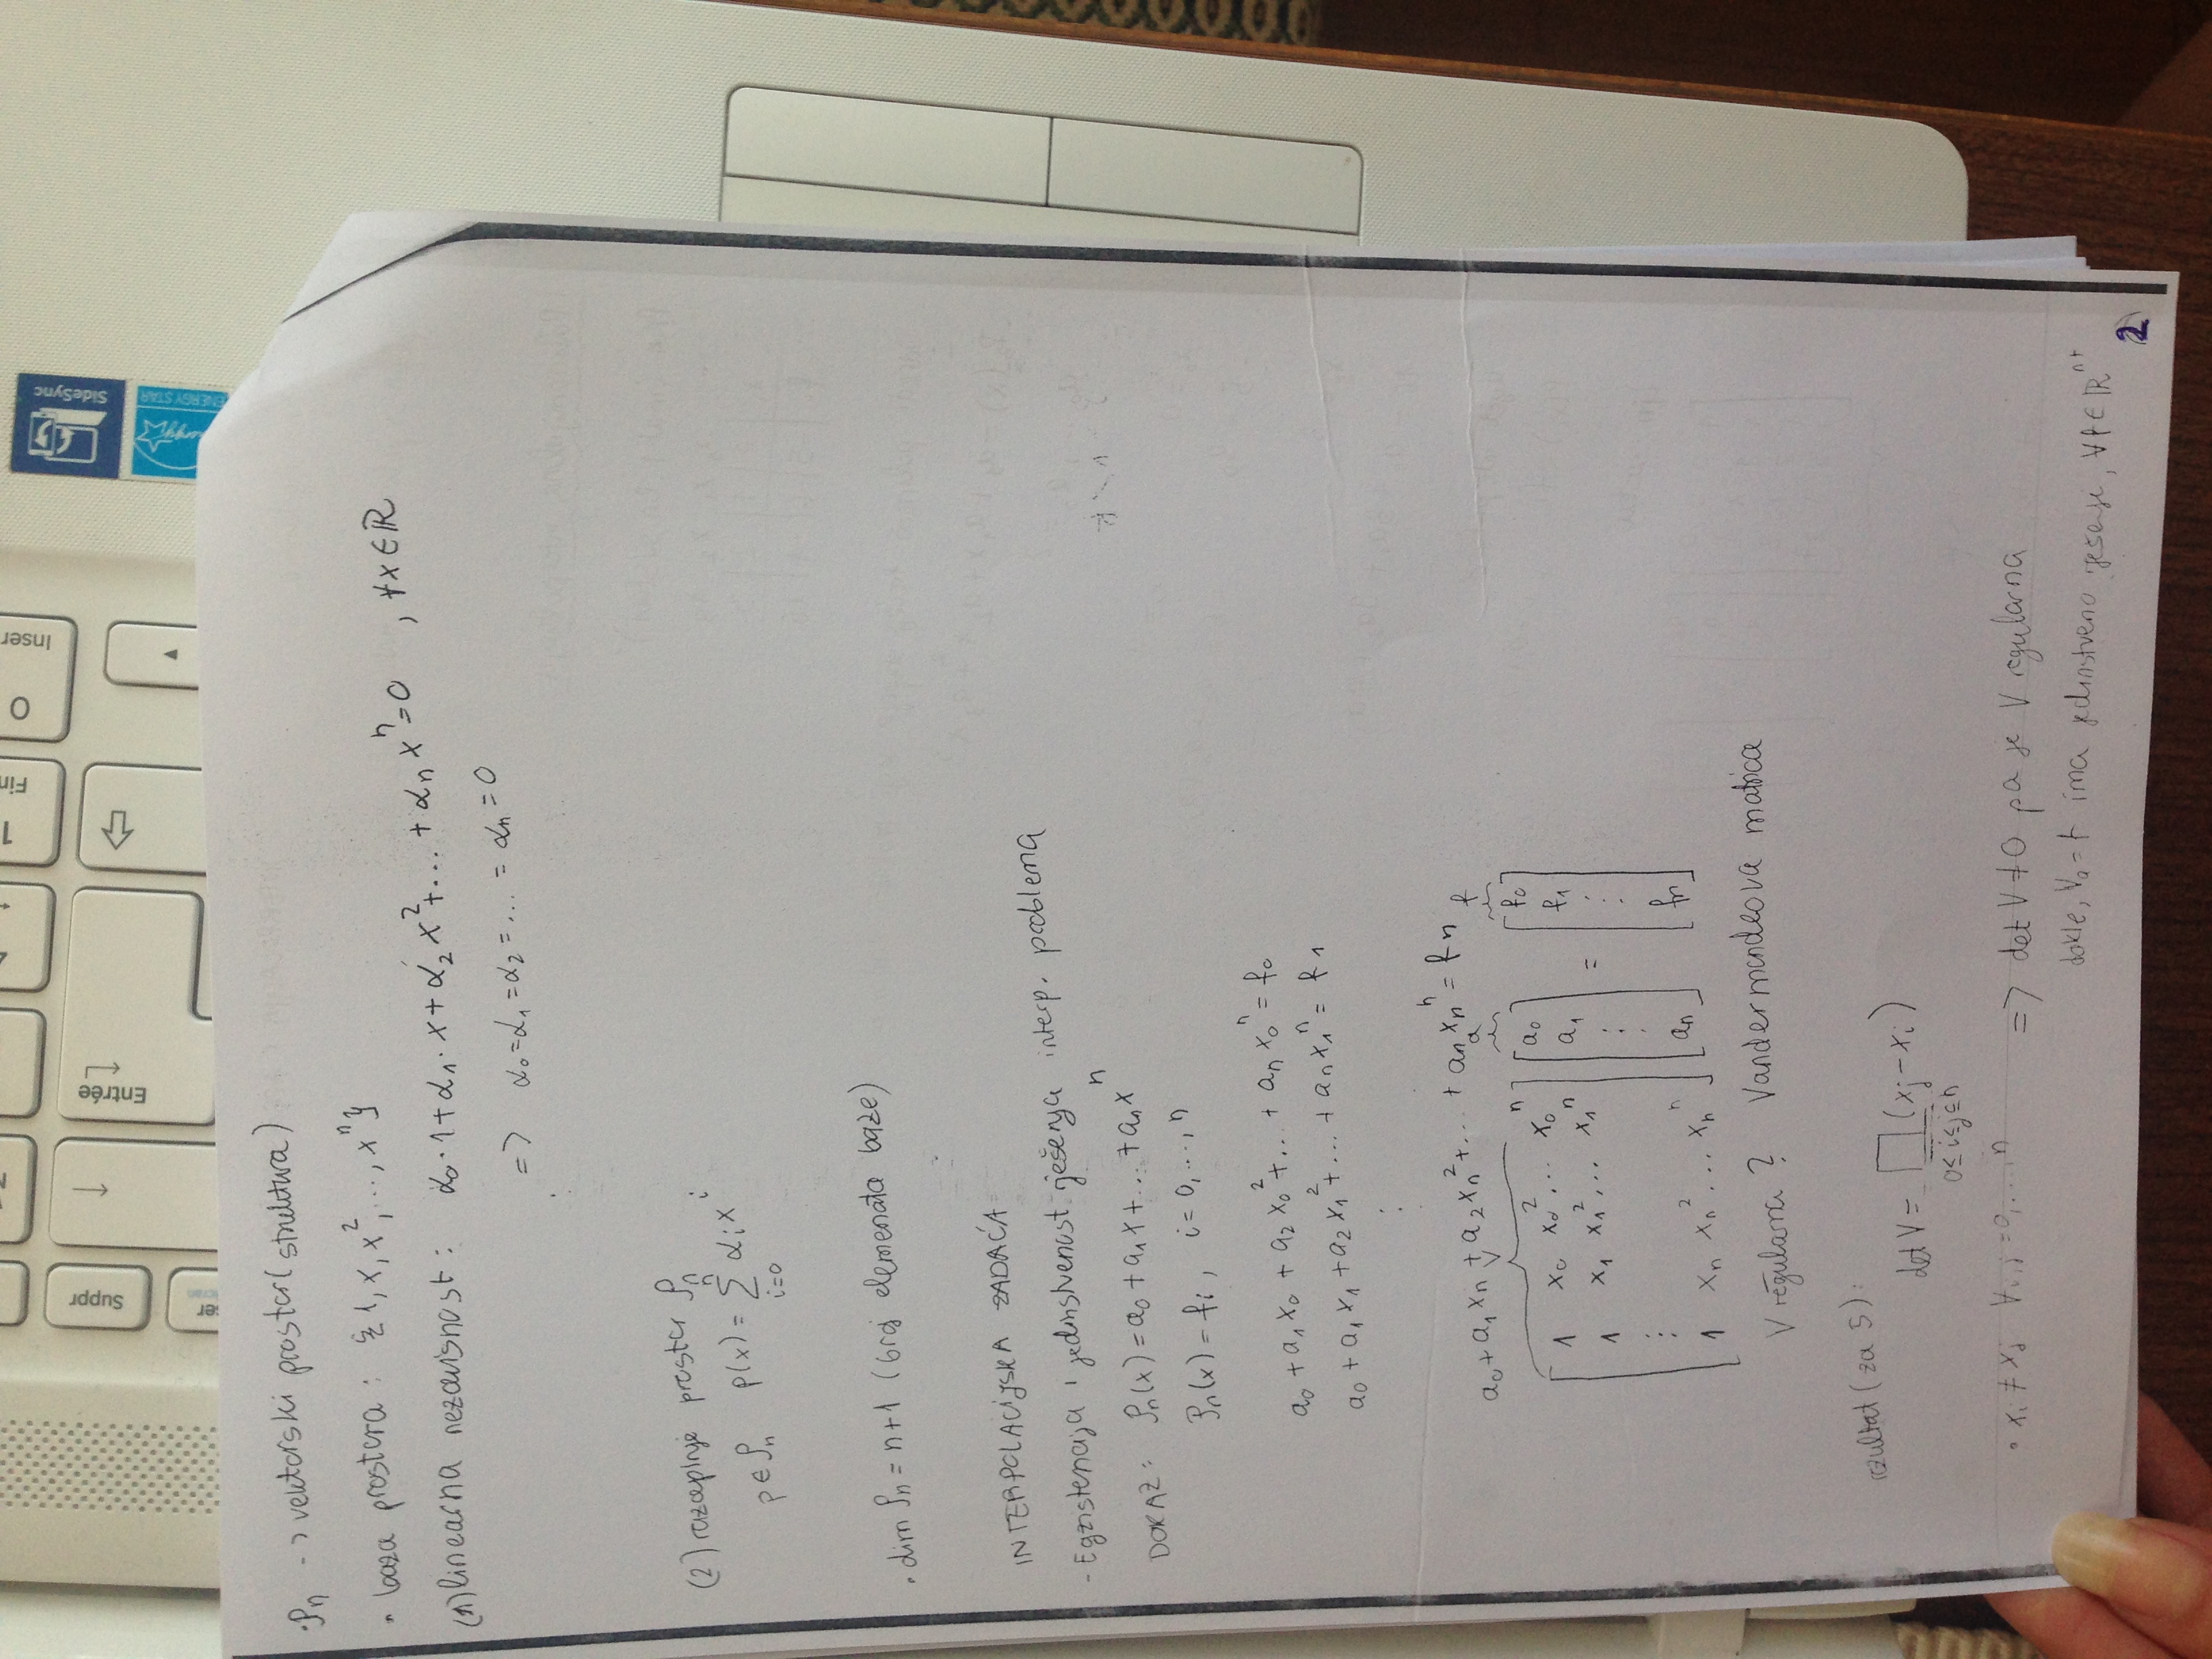 Suppr
←
Entrée
Fin
1
0
Inser
SideSync
ENERGY STAR
· Pn -> vektorski prostor (struktura)
· baza prostora: {1, x, x², ..., xⁿ}
(1) linearna nezavisnost: α₀·1+α₁·x+α₂x²+...+αₙxⁿ=0 , ∀x∈ℝ
=> α₀=α₁=α₂=...=αₙ=0
(2) razapinje prostor Pn
p∈Pn p(x)=∑ᵢ₌₀ⁿ αᵢxⁱ
· dim Pn = n+1 (broj elemenata baze)
INTERPOLACIJSKA ZADAĆA
- Egzistencija i jedinstvenost rješenja interp. problema
DOKAZ: Pn(x)=a₀+a₁x+...+aₙxⁿ
Pn(x)=fi, i=0,...,n
a₀+a₁x₀+a₂x₀²+...+aₙx₀ⁿ=f₀
a₀+a₁x₁+a₂x₁²+...+aₙx₁ⁿ=f₁
⋮
a₀+a₁xₙ+a₂xₙ²+...+aₙxₙⁿ=fₙ
V a f
[1 x₀ x₀² ... x₀ⁿ] [a₀] = [f₀]
[1 x₁ x₁² ... x₁ⁿ] [a₁] [f₁]
⋮ ⋮ ⋮
[1 xₙ xₙ² ... xₙⁿ] [aₙ] [fₙ]
V regularna? Vandermondeova matrica
rezultat (za 5):
det V = ∏ (xj-xi)
0≤i≤j≤n
· xi ≠ xj ∀i,j=0,...,n => det V≠0 pa je V regularna
dakle, Va=f ima jedinstveno rješenje, ∀f∈ℝⁿ⁺
2